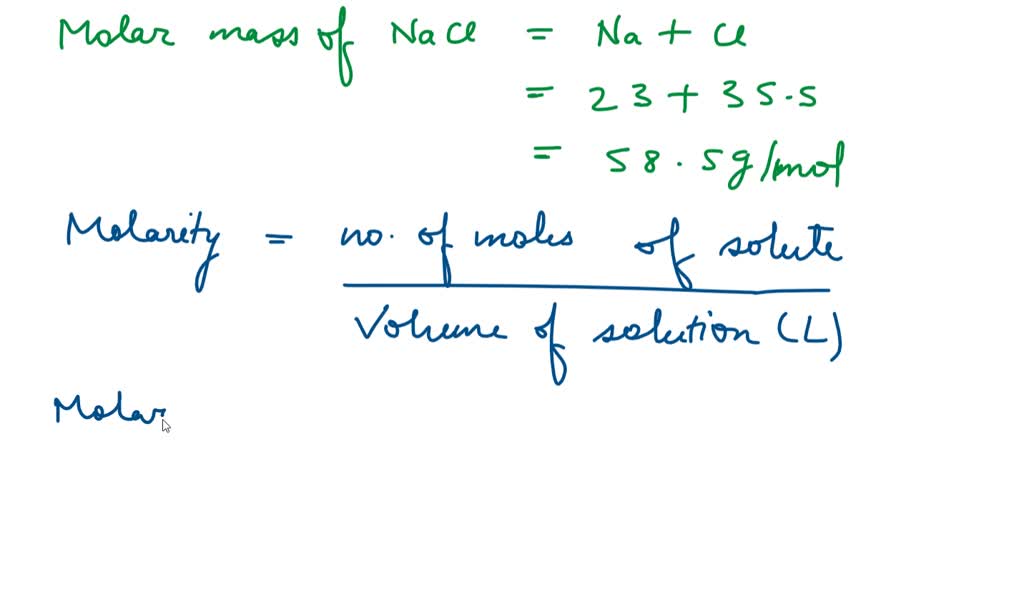 Molar mass of NaCl = Na + Cl
= 23 + 35.5
= 58.5g/mol
Molarity = no. of moles of solute
Volume of solution (L)
Molar